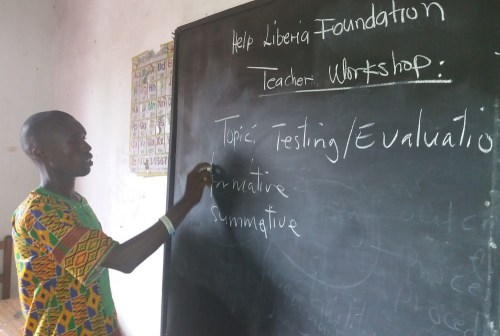 Help Liberia Foundation
Teacher Workshop:
Topic: Testing/Evaluatio
Formative
Summative